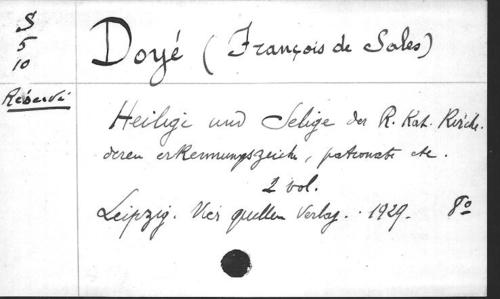 S
5
10
Réservé
Doyé (François de Sales)
Heilige und Selige der R. Kat. Kirche.
deren erkennungszeichen, patronate etc.
2 vol.
Leipzig. Vier quellen Verlag. - 1929. 8º